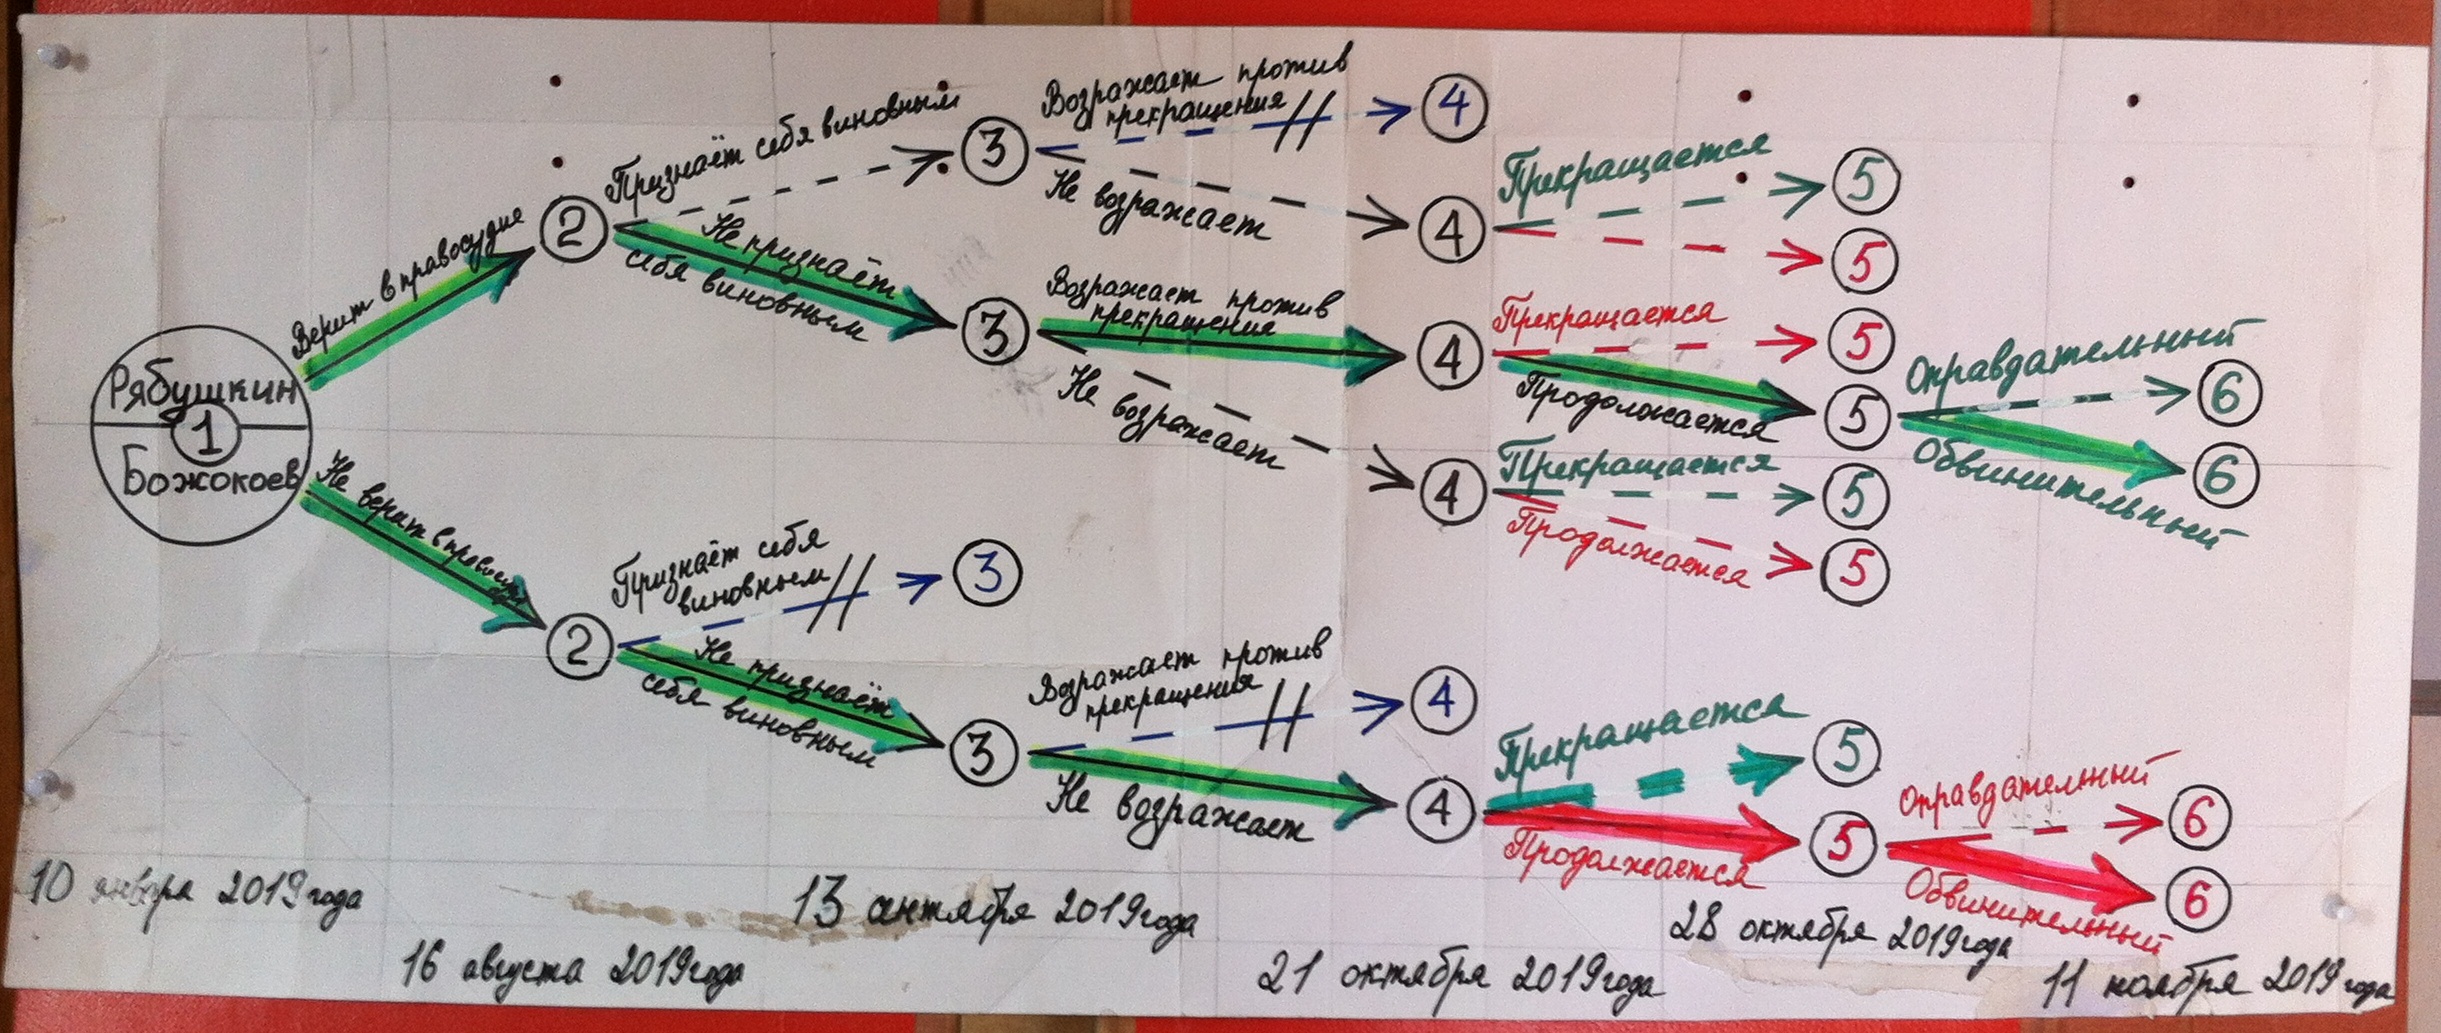 Рябушкин
1
Божокоев
Верит в правосудие
Не верит в правосудие
2
Признаёт себя виновным
Не признаёт
себя виновным
2
Признаёт себя
виновным
Не признаёт
себя виновным
3
Возражает против
прекращения
Не возражает
3
Возражает против
прекращения
Не возражает
3
3
Возражает против
прекращения
Не возражает
4
4
Прекращается
4
Прекращается
Продолжается
4
Прекращается
Продолжается
4
4
Прекращается
Продолжается
5
5
5
5
Оправдательный
Обвинительный
5
5
5
5
Оправдательный
Обвинительный
6
6
6
6
10 января 2019 года
16 августа 2019 года
13 сентября 2019 года
21 октября 2019 года
28 октября 2019 года
11 ноября 2019 года